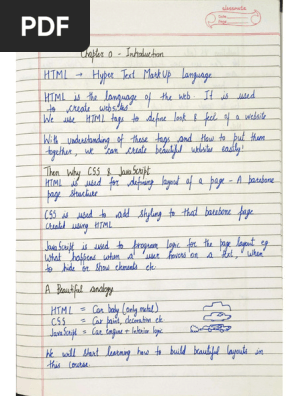 PDF
classmate
Date
Page
Chapter 0 - Introduction
HTML → Hyper Text MarkUp Language
HTML is the language of the web. It is used
to create websites
We use HTML tags to define look & feel of a website
With understanding of these tags and How to put them
together, we can create beautiful websites easily!
Then Why CSS & JavaScript
HTML is used for defining layout of a page - A barebone
page structure
CSS is used to add styling to that barebone page
created using HTML
JavaScript is used to program logic for the page layout eg
What happens when a user hovers on a text, when
to hide or show elements etc
A Beautiful analogy
HTML = Car body (only metal)
CSS = Car paint, decoration etc
JavaScript = Car Engine + interior logic
We will start learning how to build beautiful layouts in
this course.